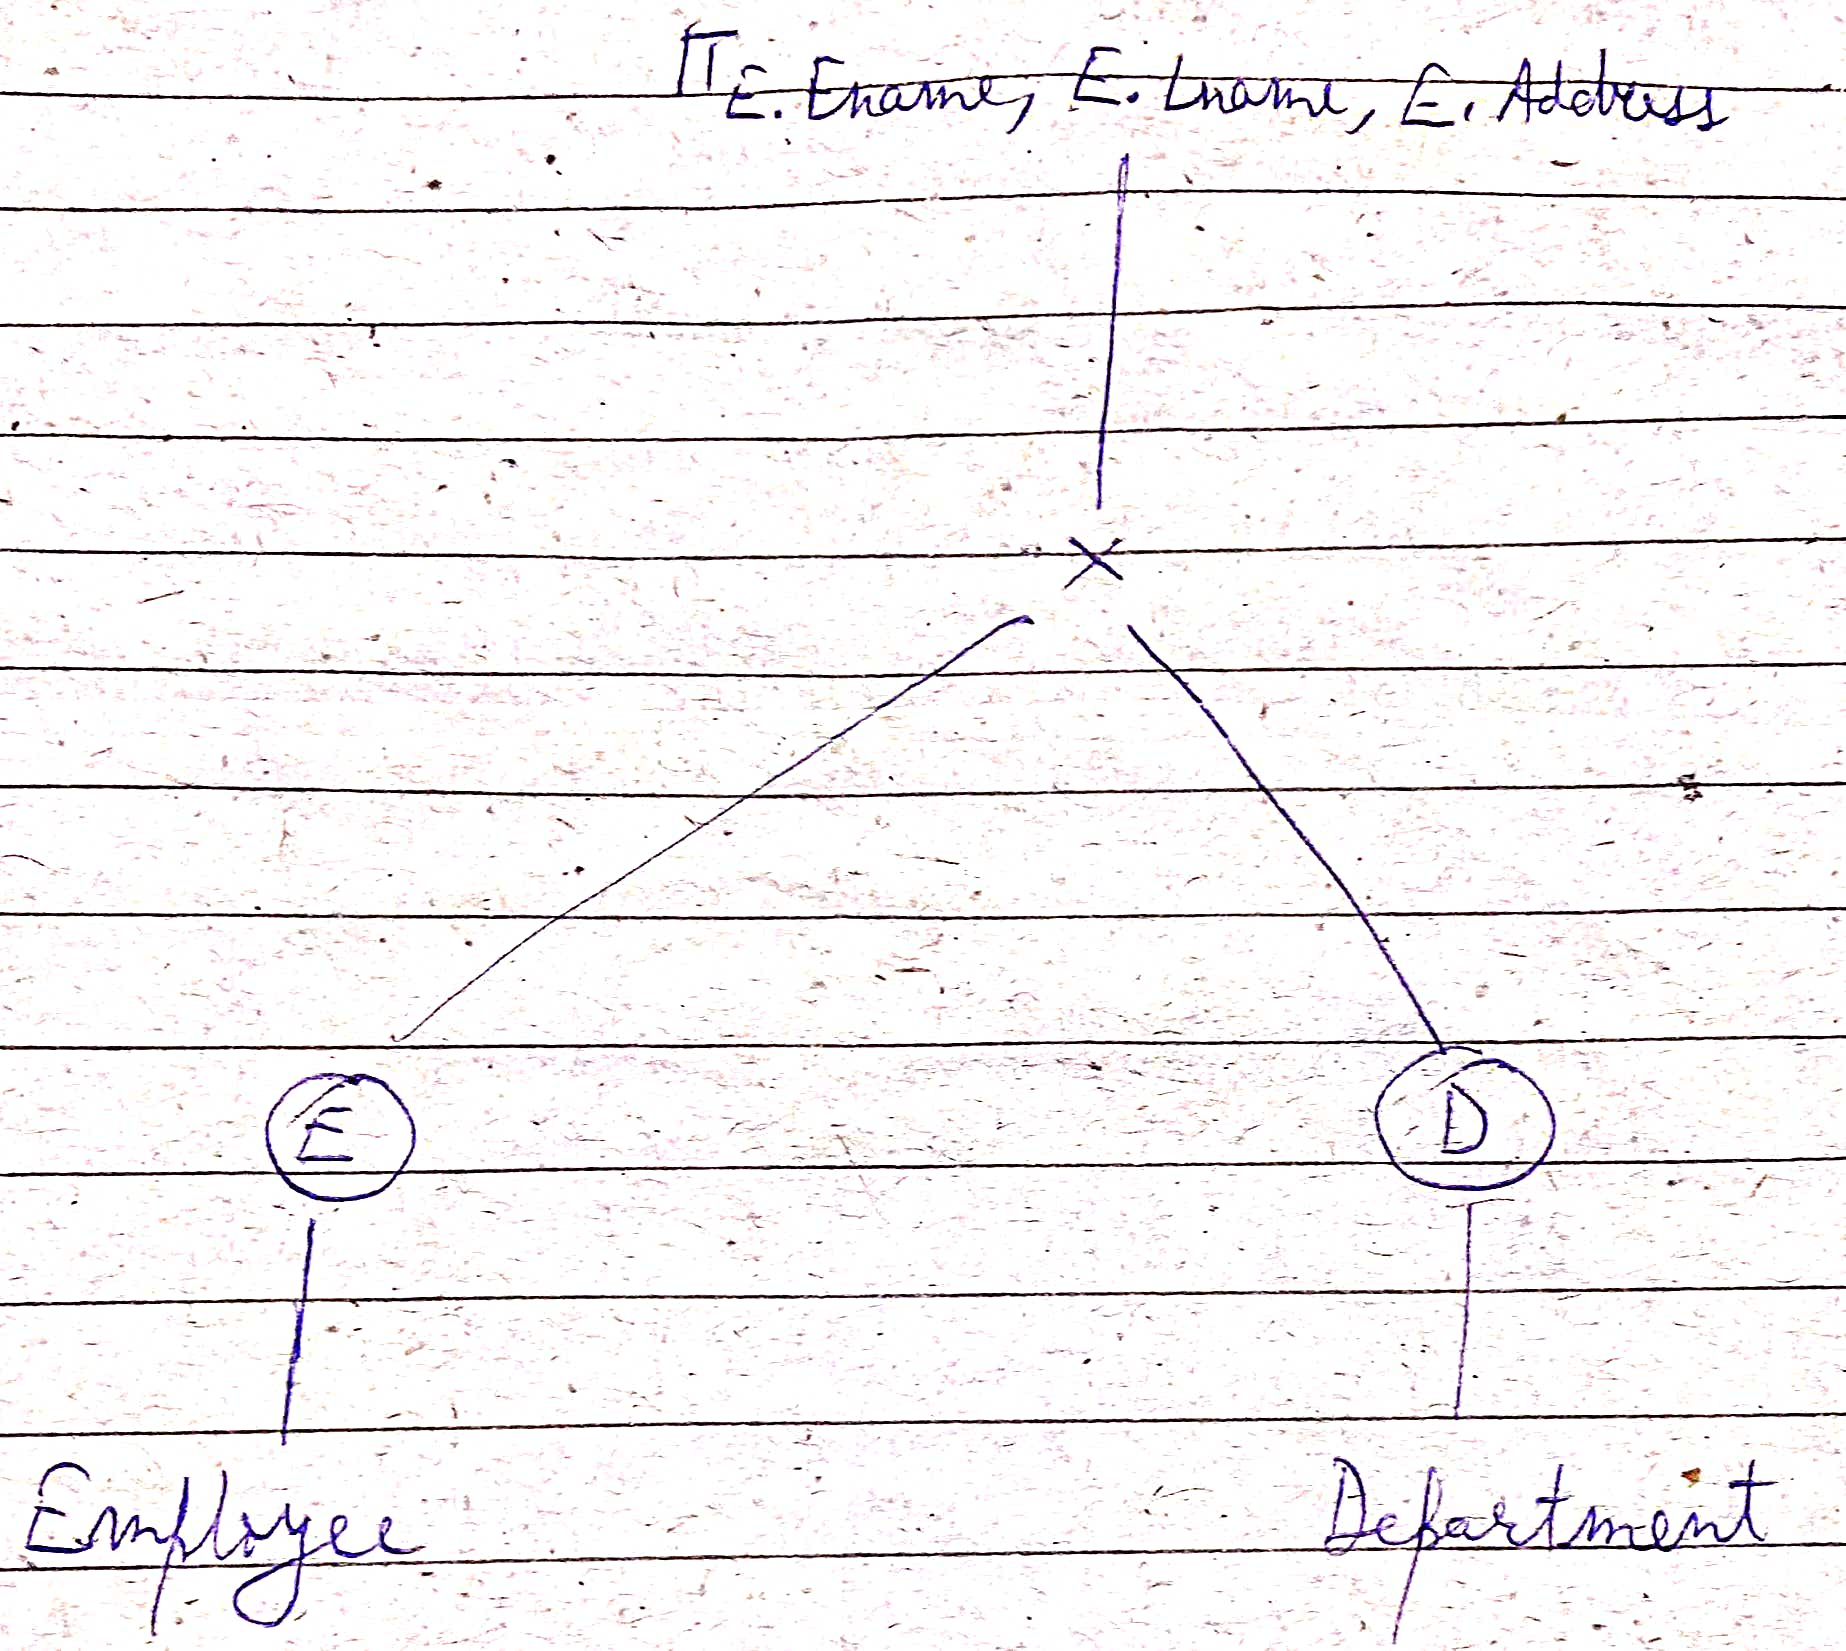 π E. Ename, E. Lname, E. Address
×
E D
Employee Department